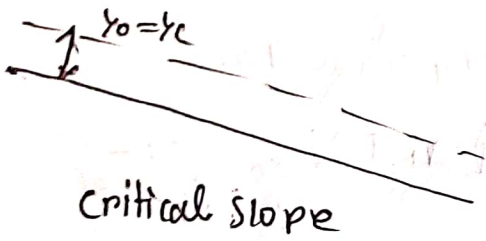 yo = yc
critical slope